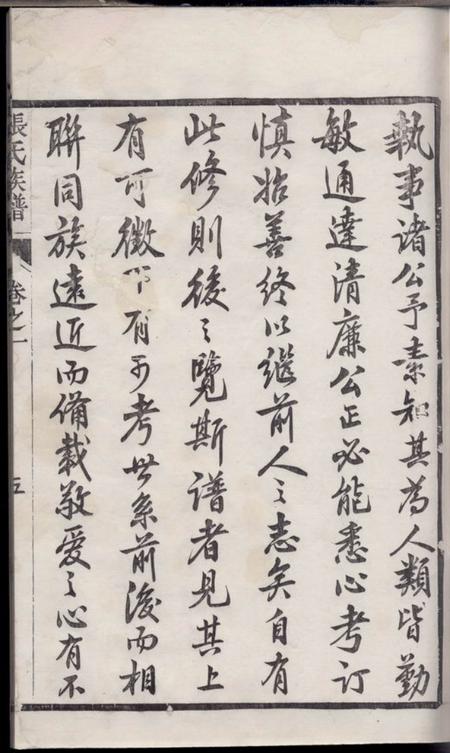 執事諸公予素知其為人類皆勤
敏通達清廉公正必能悉心考訂
慎始善终以繼前人之志矣自有
此修則後之覽斯譜者見其上
有可徵下有可考世系前後而相
聯同族遠近而備載敬愛之心有不
張氏族譜
卷之一
五